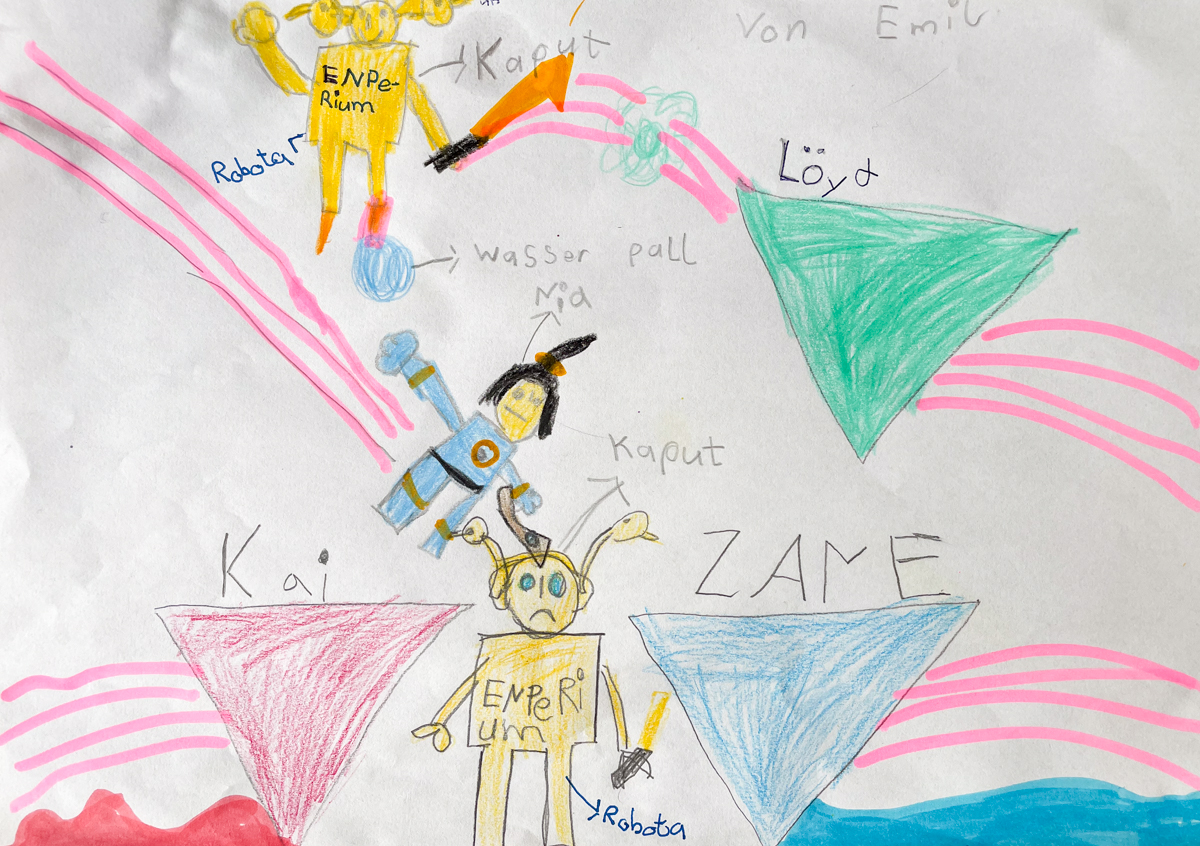 von Emil
Kaput
ENPe-
Rium
Robotar
Löyd
Wasser pall
Nia
Kaput
Kai
ZAME
ENPeRi
um
Robota